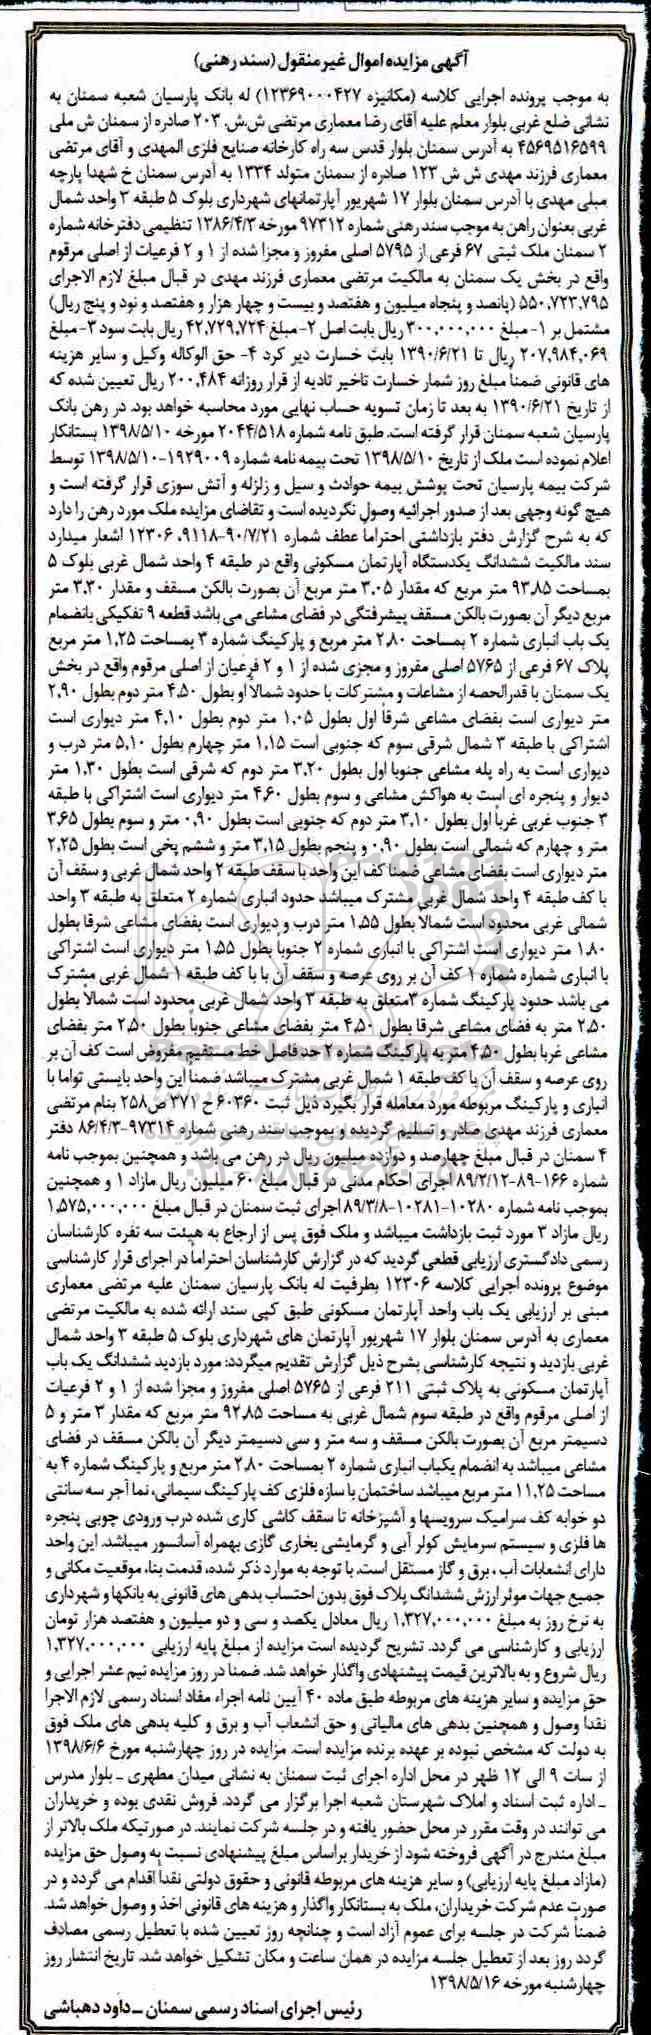 آگهی مزایده اموال غیر منقول (سند رهنی)
به موجب پرونده اجرایی کلاسه (مکانیزه ۱۲۳۶۹۰۰۰۴۲۷) له بانک پارسیان شعبه سمنان به
نشانی ضلع غربی بلوار معلم علیه آقای رضا معماری مرتضی ش.ش. ۲۰۳ صادره از سمنان ش ملی
۴۵۶۹۵۱۶۵۹۹ به آدرس سمنان بلوار قدس سه راه کارخانه صنایع فلزی المهدی و آقای مرتضی
معماری فرزند مهدی ش ش ۱۲۳ صادره از سمنان متولد ۱۳۳۴ به آدرس سمنان خ شهدا پارچه
مبلی مهدی با آدرس سمنان بلوار ۱۷ شهریور آپارتمانهای شهرداری بلوک ۵ طبقه ۳ واحد شمال
غربی بعنوان راهن به موجب سند رهنی شماره ۹۷۳۱۲ مورخه ۱۳۸۶/۴/۳ تنظیمی دفترخانه شماره
۲ سمنان ملک ثبتی ۶۷ فرعی از ۵۷۹۵ اصلی مفروز و مجزا شده از ۱ و ۲ فرعیات از اصلی مرقوم
واقع در بخش یک سمنان به مالکیت مرتضی معماری فرزند مهدی در قبال مبلغ لازم الاجرای
۵۵۰,۷۲۳,۷۹۵ (پانصد و پنجاه میلیون و هفتصد و بیست و چهار هزار و هفتصد و نود و پنج ریال)
مشتمل بر ۱- مبلغ ۳۰۰,۰۰۰,۰۰۰ ریال بابت اصل ۲- مبلغ ۴۲,۷۲۹,۷۲۴ ریال بابت سود ۳- مبلغ
۲۰۷,۹۸۴,۰۶۹ ریال تا ۱۳۹۰/۶/۲۱ بابت خسارت دیر کرد ۴- حق الوکاله وکیل و سایر هزینه
های قانونی ضمنا مبلغ روز شمار خسارت تاخیر تادیه از قرار روزانه ۲۰۰,۴۸۴ ریال تعیین شده که
از تاریخ ۱۳۹۰/۶/۲۱ به بعد تا زمان تسویه حساب نهایی مورد محاسبه خواهد بود. در رهن بانک
پارسیان شعبه سمنان قرار گرفته است. طبق نامه شماره ۲۰۴۴/۵۱۸ مورخه ۱۳۹۸/۵/۱۰ بستانکار
اعلام نموده است ملک از تاریخ ۱۳۹۸/۵/۱۰ تحت بیمه نامه شماره ۱۹۲۹۰۰۹-۱۳۹۸/۵/۱۰ توسط
شرکت بیمه پارسیان تحت پوشش بیمه حوادث و سیل و زلزله و آتش سوزی قرار گرفته است و
هیچ گونه وجهی بعد از صدور اجرائیه وصول نگردیده است و تقاضای مزایده ملک مورد رهن را دارد
که به شرح گزارش دفتر بازداشتی احتراما عطف شماره ۹۰/۷/۲۱-۹۱۱۸، ۱۲۳۰۶ اشعار میدارد
سند مالکیت ششدانگ یکدستگاه آپارتمان مسکونی واقع در طبقه ۴ واحد شمال غربی بلوک ۵
بمساحت ۹۳,۸۵ متر مربع که مقدار ۳,۰۵ متر مربع آن بصورت بالکن مسقف و مقدار ۳,۳۰ متر
مربع دیگر آن بصورت بالکن مسقف پیشرفتگی در فضای مشاعی می باشد قطعه ۹ تفکیکی بانضمام
یک باب انباری شماره ۲ بمساحت ۲,۸۰ متر مربع و پارکینگ شماره ۳ بمساحت ۱,۲۵ متر مربع
پلاک ۶۷ فرعی از ۵۷۶۵ اصلی مفروز و مجزی شده از ۱ و ۲ فرعیان از اصلی مرقوم واقع در بخش
یک سمنان با قدرالحصه از مشاعات و مشترکات با حدود شمالا او بطول ۴,۵۰ متر دوم بطول ۲,۹۰
متر دیواری است بفضای مشاعی شرقا اول بطول ۱,۰۵ متر دوم بطول ۴,۱۰ متر دیواری است
اشتراکی با طبقه ۳ شمال شرقی سوم که جنوبی است ۱,۱۵ متر چهارم بطول ۵,۱۰ متر درب و
دیواری است به راه پله مشاعی جنوبا اول بطول ۳,۲۰ متر دوم که شرقی است بطول ۱,۳۰ متر
دیوار و پنجره ای است به هواکش مشاعی و سوم بطول ۴,۶۰ متر دیواری است اشتراکی با طبقه
۳ جنوب غربی غربا اول بطول ۳,۱۰ متر دوم که جنوبی است بطول ۰,۹۰ متر و سوم بطول ۳,۶۵
متر و چهارم که شمالی است بطول ۰,۹۰ و پنجم بطول ۳,۱۵ متر و ششم پخی است بطول ۲,۲۵
متر دیواری است بفضای مشاعی ضمنا کف این واحد با سقف طبقه ۲ واحد شمال غربی و سقف آن
با کف طبقه ۴ واحد شمال غربی مشترک میباشد حدود انباری شماره ۲ متعلق به طبقه ۳ واحد
شمالی غربی محدود است شمالا بطول ۱,۵۵ متر درب و دیواری است بفضای مشاعی شرقا بطول
۱,۸۰ متر دیواری است اشتراکی با انباری شماره ۲ جنوبا بطول ۱,۵۵ متر دیواری است اشتراکی
با انباری شماره شماره ۱ کف آن بر روی عرصه و سقف آن با با کف طبقه ۱ شمال غربی مشترک
می باشد حدود پارکینگ شماره ۳متعلق به طبقه ۳ واحد شمال غربی محدود است شمالا بطول
۲,۵۰ متر به فضای مشاعی شرقا بطول ۴,۵۰ متر بفضای مشاعی جنوبا بطول ۲,۵۰ متر بفضای
مشاعی غربا بطول ۴,۵۰ متر به پارکینگ شماره ۲ حد فاصل خط مستقیم مفروض است کف آن بر
روی عرصه و سقف آن با کف طبقه ۱ شمال غربی مشترک میباشد ضمنا این واحد بایستی تواما با
انباری و پارکینگ مربوطه مورد معامله قرار بگیرد ذیل ثبت ۶۰۳۶۰ ح ۳۷۱ ص۲۵۸ بنام مرتضی
معماری فرزند مهدی صادر و تسلیم گردیده و بموجب سند رهنی شماره ۹۷۳۱۴-۸۶/۴/۳ دفتر
۴ سمنان در قبال مبلغ چهارصد و دوازده میلیون ریال در رهن می باشد و همچنین بموجب نامه
شماره ۱۶۶-۸۹-۸۹/۲/۱۲ اجرای احکام مدنی در قبال مبلغ ۶۰ میلیون ریال مازاد ۱ و همچنین
بموجب نامه شماره ۱۰۲۸۰-۱۰۲۸۱-۸۹/۳/۸ اجرای ثبت سمنان در قبال مبلغ ۱,۵۷۵,۰۰۰,۰۰۰
ریال مازاد ۳ مورد ثبت بازداشت میباشد و ملک فوق پس از ارجاع به هیئت سه نفره کارشناسان
رسمی دادگستری ارزیابی قطعی گردید که در گزارش کارشناسان احتراما در اجرای قرار کارشناسی
موضوع پرونده اجرایی کلاسه ۱۲۳۰۶ بطرفیت له بانک پارسیان سمنان علیه مرتضی معماری
مبنی بر ارزیابی یک باب واحد آپارتمان مسکونی طبق کپی سند ارائه شده به مالکیت مرتضی
معماری به آدرس سمنان بلوار ۱۷ شهریور آپارتمان های شهرداری بلوک ۵ طبقه ۳ واحد شمال
غربی بازدید و نتیجه کارشناسی بشرح ذیل گزارش تقدیم میگردد: مورد بازدید ششدانگ یک باب
آپارتمان مسکونی به پلاک ثبتی ۲۱۱ فرعی از ۵۷۶۵ اصلی مفروز و مجزا شده از ۱ و ۲ فرعیات
از اصلی مرقوم واقع در طبقه سوم شمال غربی به مساحت ۹۲,۸۵ متر مربع که مقدار ۳ متر و ۵
دسیمتر مربع آن بصورت بالکن مسقف و سه متر و سی دسیمتر دیگر آن بالکن مسقف در فضای
مشاعی میباشد به انضمام یکباب انباری شماره ۲ بمساحت ۲,۸۰ متر مربع و پارکینگ شماره ۴ به
مساحت ۱۱,۲۵ متر مربع میباشد ساختمان با سازه فلزی کف پارکینگ سیمانی، نما آجر سه سانتی
دو خوابه کف سرامیک سرویسها و آشپزخانه تا سقف کاشی کاری شده درب ورودی چوبی پنجره
ها فلزی و سیستم سرمایش کولر آبی و گرمایشی بخاری گازی بهمراه آسانسور میباشد. این واحد
دارای انشعابات آب ، برق و گاز مستقل است. با توجه به موارد ذکر شده، قدمت بنا، موقعیت مکانی و
جمیع جهات موثر ارزش ششدانگ پلاک فوق بدون احتساب بدهی های قانونی به بانکها و شهرداری
به نرخ روز به مبلغ ۱,۳۲۷,۰۰۰,۰۰۰ ریال معادل یکصد و سی و دو میلیون و هفتصد هزار تومان
ارزیابی و کارشناسی می گردد. تشریح گردیده است مزایده از مبلغ پایه ارزیابی ۱,۳۲۷,۰۰۰,۰۰۰
ریال شروع و به بالاترین قیمت پیشنهادی واگذار خواهد شد. ضمنا در روز مزایده نیم عشر اجرایی و
حق مزایده و سایر هزینه های مربوطه طبق ماده ۴۰ آیین نامه اجراء مفاد اسناد رسمی لازم الاجرا
نقداً وصول و همچنین بدهی های مالیاتی و حق انشعاب آب و برق و کلیه بدهی های ملک فوق
به دولت که مشخص نبوده بر عهده برنده مزایده است. مزایده در روز چهارشنبه مورخ ۱۳۹۸/۶/۶
از سات ۹ الی ۱۲ ظهر در محل اداره اجرای ثبت سمنان به نشانی میدان مطهری ـ بلوار مدرس
ـ اداره ثبت اسناد و املاک شهرستان شعبه اجرا برگزار می گردد. فروش نقدی بوده و خریداران
می توانند در وقت مقرر در محل حضور یافته و در جلسه شرکت نمایند. در صورتیکه ملک بالاتر از
مبلغ مندرج در آگهی فروخته شود از خریدار براساس مبلغ پیشنهادی نسبت به وصول حق مزایده
(مازاد مبلغ پایه ارزیابی) و سایر هزینه های مربوطه قانونی و حقوق دولتی نقداً اقدام می گردد و در
صورت عدم شرکت خریداران، ملک به بستانکار واگذار و هزینه های قانونی اخذ و وصول خواهد شد.
ضمناً شرکت در جلسه برای عموم آزاد است و چنانچه روز تعیین شده با تعطیل رسمی مصادف
گردد روز بعد از تعطیل جلسه مزایده در همان ساعت و مکان تشکیل خواهد شد. تاریخ انتشار روز
چهارشنبه مورخه ۱۳۹۸/۵/۱۶
رئیس اجرای اسناد رسمی سمنان ـ داود دهباشی